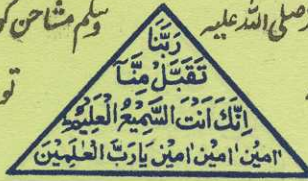 صلی اللہ علیہ وسلم مشاحن کو
تو
رَبَّنَا
تَقَبَّلْ مِنَّا
اِنَّكَ اَنْتَ السَّمِيْعُ الْعَلِيْمُ
اٰمِيْن' اٰمِيْن' اٰمِيْن يَا رَبَّ الْعٰلَمِيْنَ